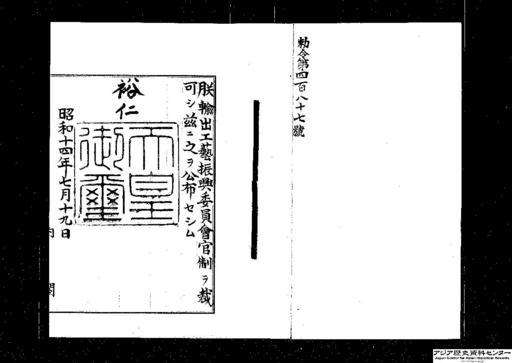 勅令第四百八十七號
朕輸出工藝振興委員會官制ヲ裁
可シ茲ニ之ヲ公布セシム
裕仁
天皇
御璽
昭和十四年七月十九日
内閣
アジア歴史資料センター
Japan Center for Asian Historical Records